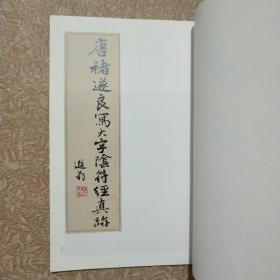 唐褚遂良寫大字陰符經真跡